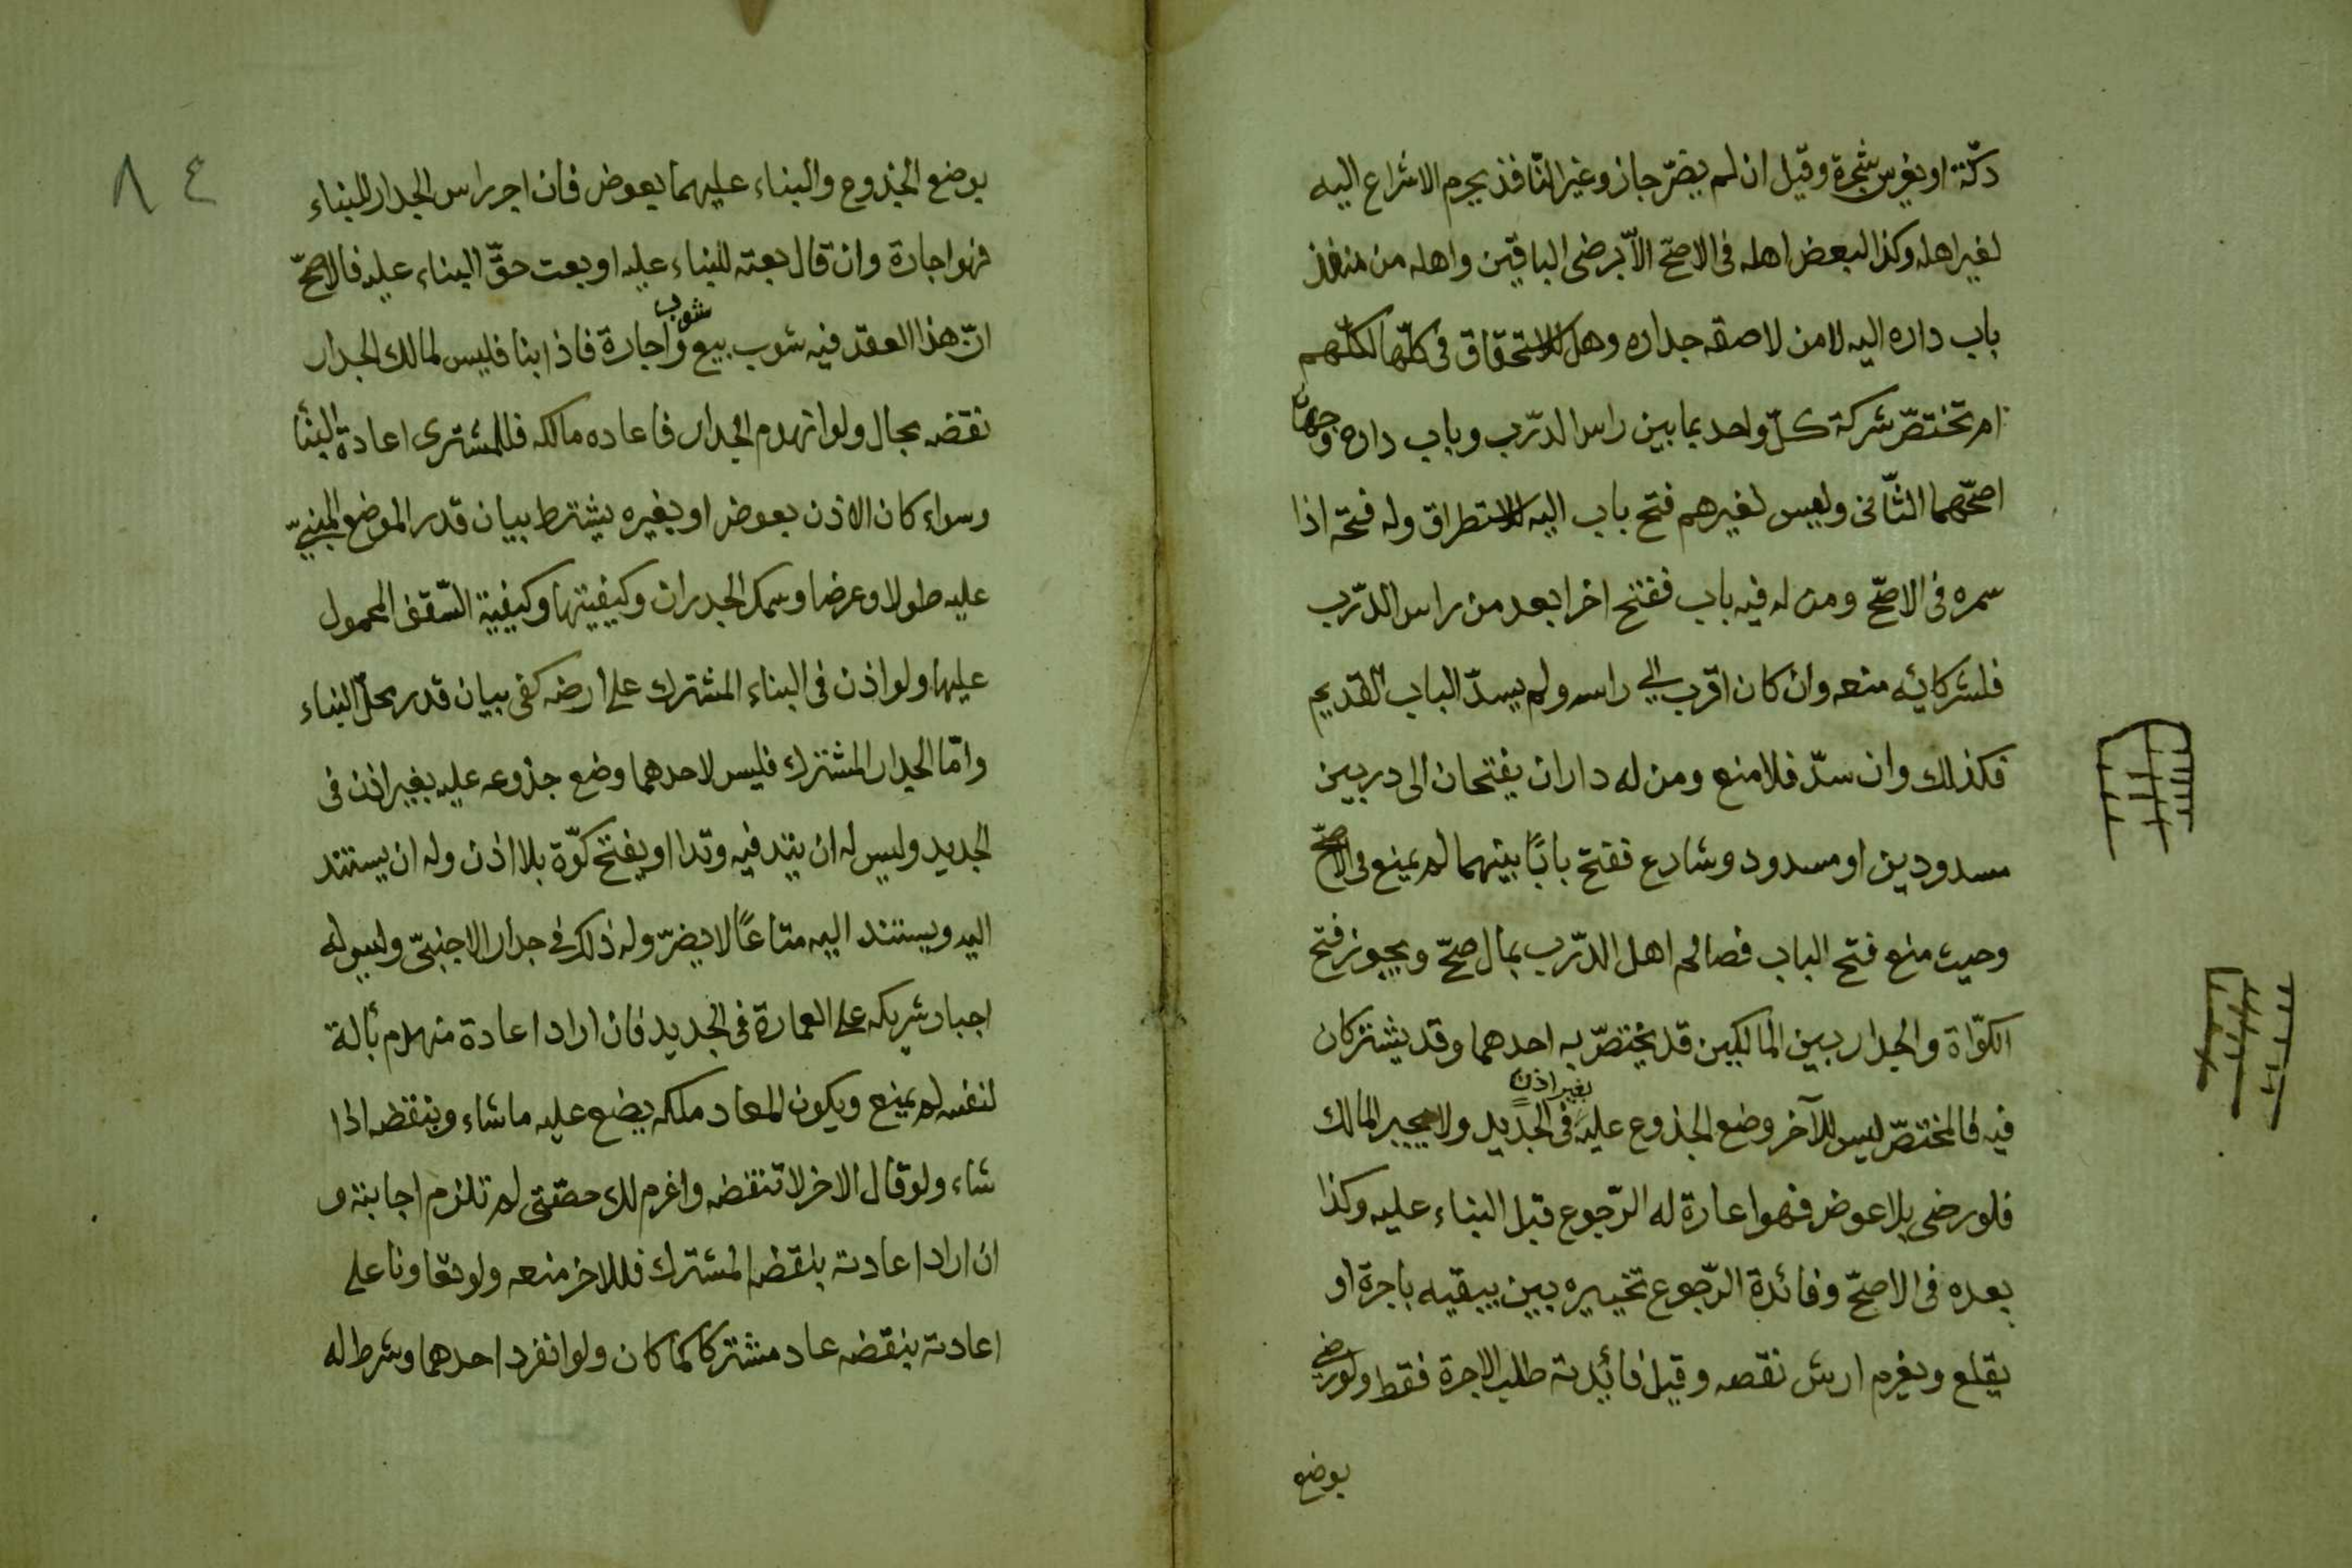 دكّة او يغرس شجرة وقيل ان لم يضرّ جاز وغير النّافذ يحرم الاشراع اليه
لغير اهله وكذا لبعض اهله فى الاصحّ الّا برضى الباقين واهله من منفذ
باب داره اليه لا من لاصقه جداره وهل الاستحقاق فى كلّها لكلّهم
ام تختصّ شركة كلّ واحد بما بين راس الدّرب وباب داره وجهان
اصحّهما الثّانى وليس لغيرهم فتح باب اليه للاستطراق وله فتحه اذا
سمره فى الاصحّ ومن له فيه باب ففتح اخر ابعد من راس الدّرب
فلشركائه منعه وان كان اقرب الى راسه ولم يسدّ الباب القديم
فكذلك وان سدّ فلا منع ومن له داران يفتحان الى دربين
مسدودين او مسدود وشارع ففتح بابًا بينهما لم يمنع فى الاصحّ
وحيث منع فتح الباب فصالحه اهل الدّرب بمال صحّ ويجوز فتح
الكوّاة والجدار بين المالكين قد يختصّ به احدهما وقد يشتركان
فيه فالمختصّ ليس للآخر وضع الجذوع عليه بغير اذن فى الجديد ولا يجبر المالك
فلو رضى بلا عوض فهو اعارة له الرّجوع قبل البناء عليه وكذا
بعده فى الاصحّ وفائدة الرّجوع تخييره بين يبقيه باجرة او
يقلع ويغرم ارش نقصه وقيل فائدته طلب الاجرة فقط ولو رضى
بوضع
٨٤
بوضع الجذوع والبناء عليهما بعوض فان اجر راس الجدار للبناء
فهو اجارة وان قال بعته للبناء عليه او بعت حقّ البناء عليه فالاصحّ
انّ هذا العقد فيه شوب بيع وشوب اجارة فاذا بنا فليس لمالك الجدار
نقضه بحال ولو انهدم الجدار فاعاده مالكه فللمشترى اعادة البنا
وسواء كان الاذن بعوض او بغيره يشترط بيان قدر الموضع المبنىّ
عليه طولا وعرضا وسمك الجدران وكيفيتها وكيفية السّقف المحمول
عليها ولو اذن فى البناء المشترك على ارضه كفى بيان قدر محلّ البناء
وامّا الجدار المشترك فليس لاحدهما وضع جذوعه عليه بغير اذن فى
الجديد وليس له ان يتد فيه وتدا او يفتح كوّة بلا اذن وله ان يستند
اليه ويستند اليه متاعًا لا يضرّ وله ذلك فى جدار الاجنبىّ وليس له
اجبار شريكه على العمارة فى الجديد فان اراد اعادة منهدم بآلة
لنفسه لم يمنع ويكون المعاد ملكه يضع عليه ما شاء وينقضه اذا
شاء ولو قال الاخر لا تنقضه واغرم لك حصّتى لم تلزم اجابته و
ان اراد اعادته بنقضه المشترك فللاخر منعه ولو تعاونا على
اعادته بنقضه عاد مشتركا كما كان ولو انفرد احدهما وشرط له